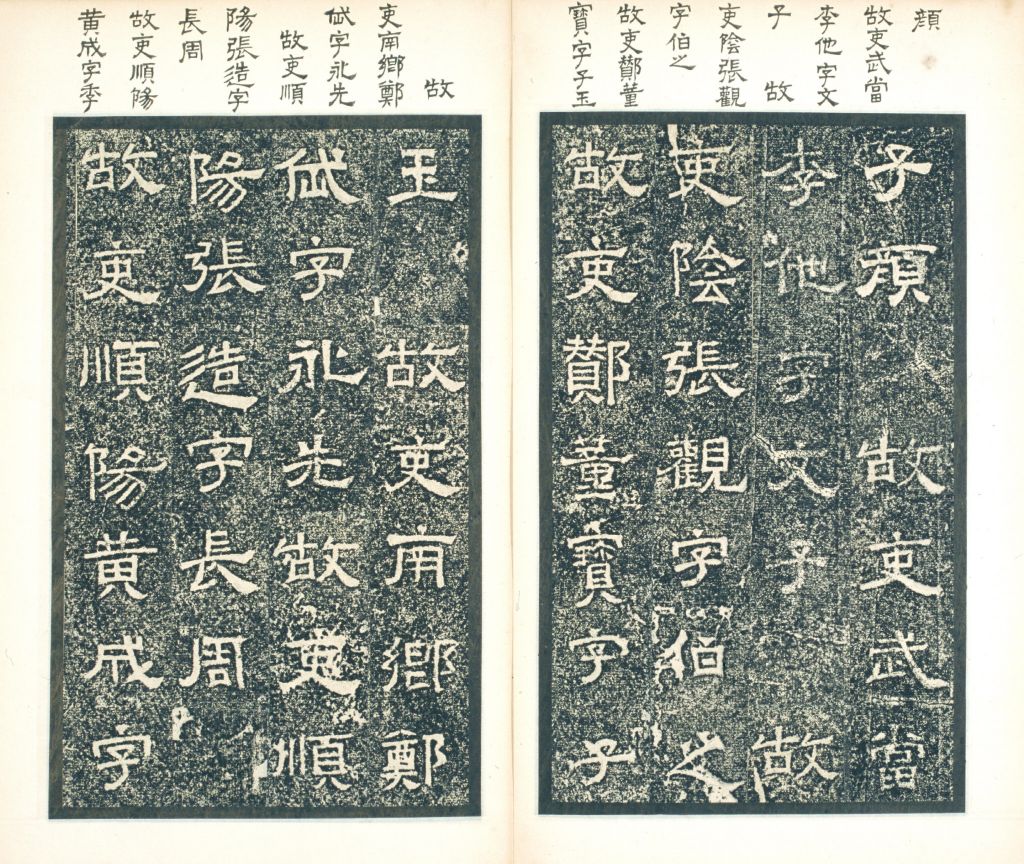 頽
故吏武當
李他字文
子 故
吏陰張觀
字伯之
故吏酇董
寶字子玉
子頽 故吏武當
李他字文子 故
吏陰張觀字伯之
故吏酇董寶字子
故
吏南鄉鄭
字永先
故吏順
陽張造字
長周
故吏順陽
黄成字季
玉 故吏南鄉鄭
字永先 故吏順
陽張造字長周
故吏順陽黄成字